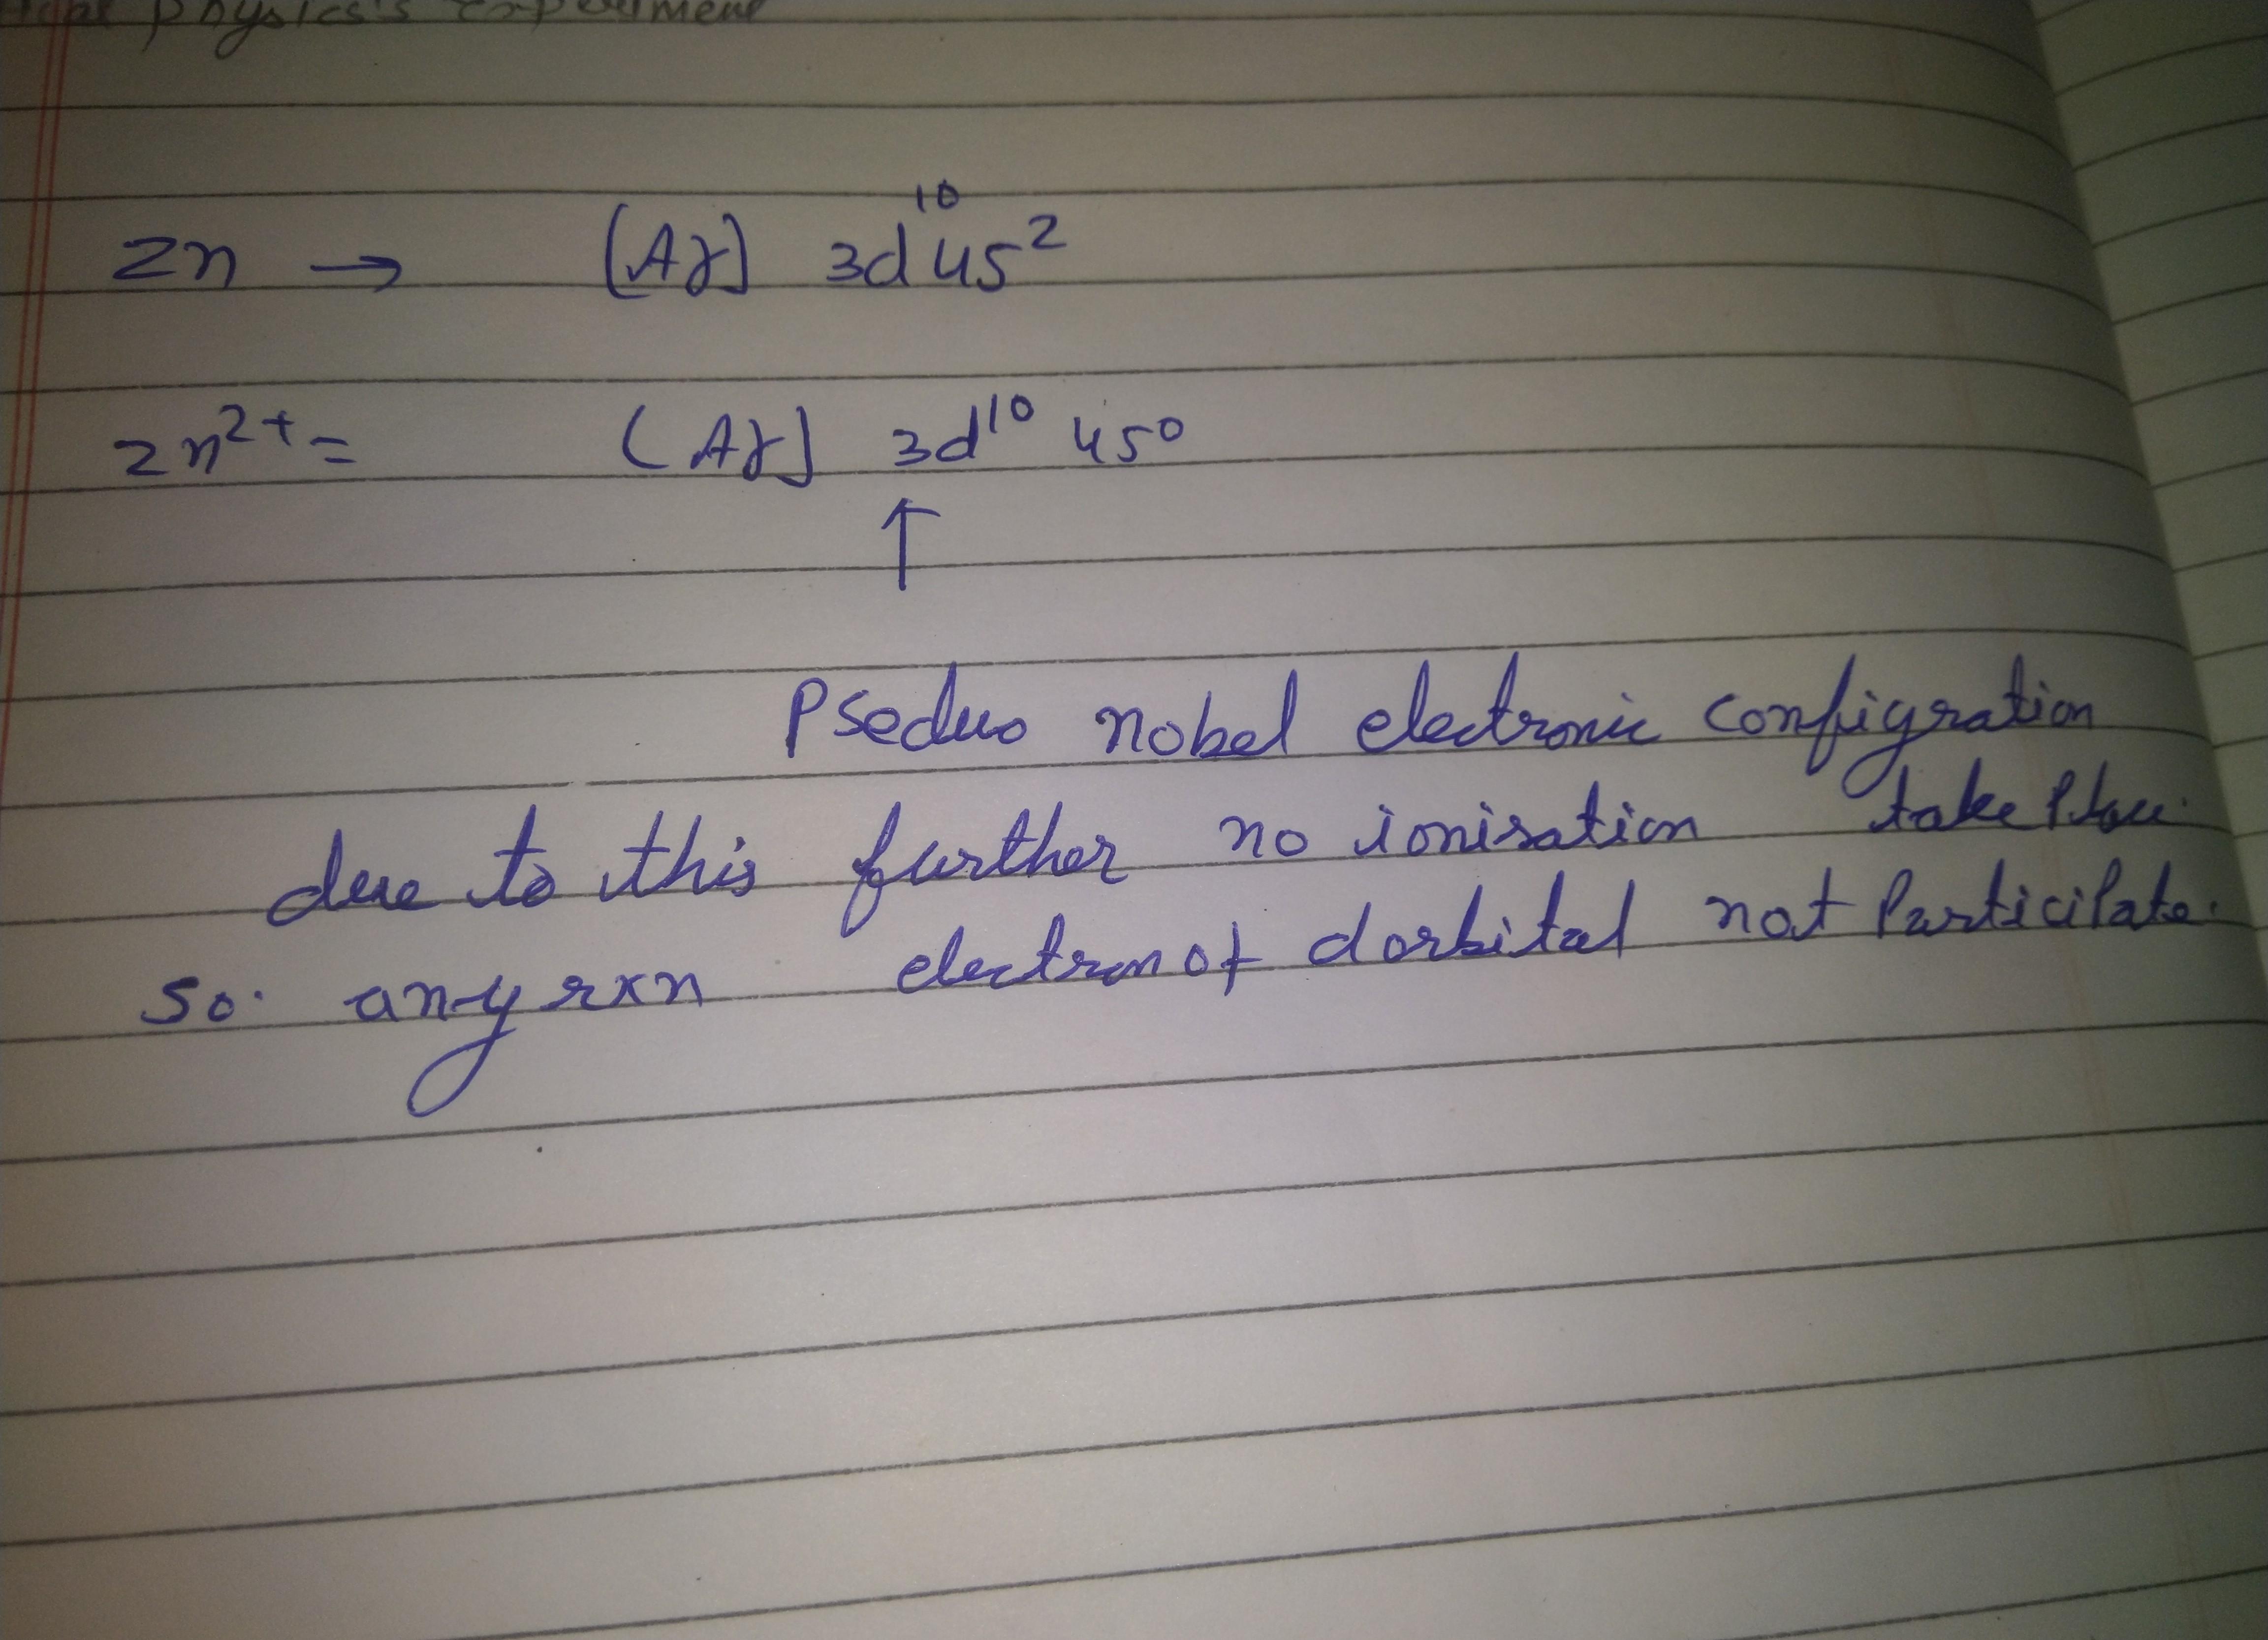 physics's experiment
Zn → [Ar] 3d¹⁰ 4s²
Zn²⁺ = [Ar] 3d¹⁰ 4s⁰
↑
Pseduo nobel electronic configration
due to this further no ionisation take place.
So. any rxn electron of d orbital not Participate.